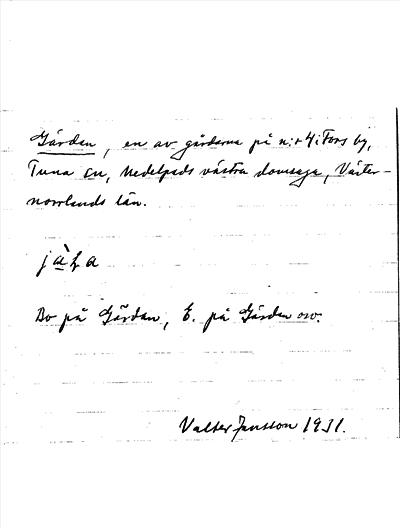 Gärdan, en av gårdarna på n:r 4 i Fors by,
Tuna sn, Medelpads västra domsaga, Väster-
norrlands län.
Bo på Gärdan, E. på Gärdan osv.
Valter Jansson 1931.